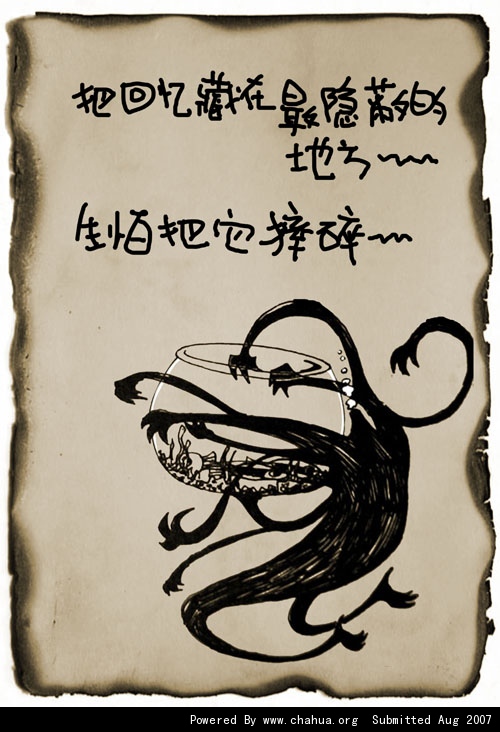 把回忆藏在最隐蔽的
地方~~~
生怕把它摔碎~~
Powered By www.chahua.org Submitted Aug 2007